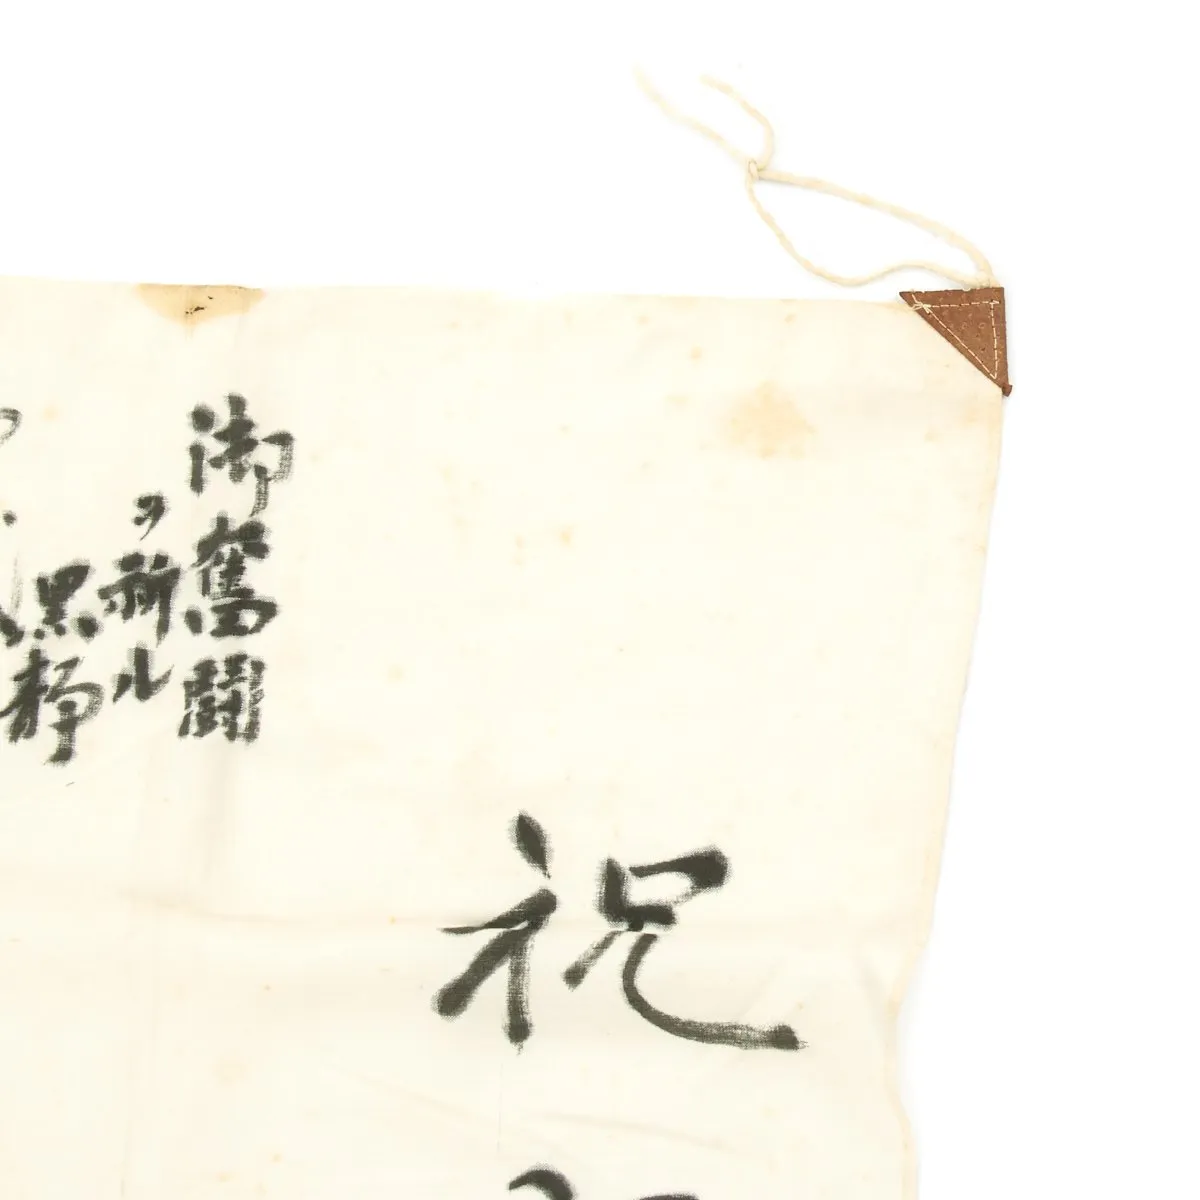 祝
御奮闘
ヲ祈ル
黒静